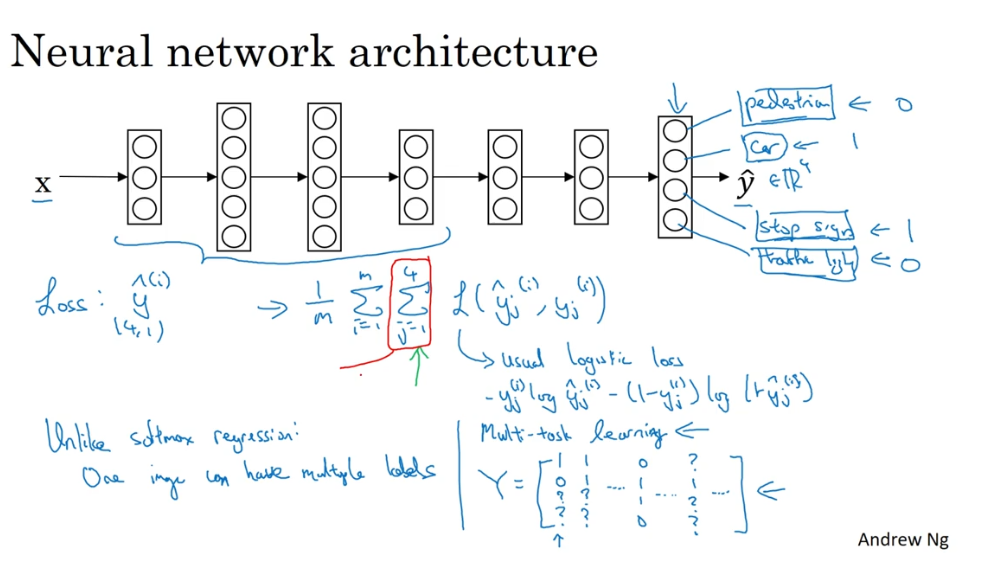 Neural network architecture
pedestrian ← 0
car ← 1
x
ŷ ∈ ℝ⁴
stop sign ← 1
traffic light ← 0
Loss: ŷ^(i) → 1/m Σ_{i=1}^{m} Σ_{j=1}^{4} L(ŷ_j^(i), y_j^(i))
(4,1)
→ usual logistic loss
- y_j^(i) log ŷ_j^(i) - (1-y_j^(i)) log (1-ŷ_j^(i))
Unlike softmax regression:
One image can have multiple labels
Multi-task learning ←
Y = [ 1 1 0 ?
0 1 .... 1 .... 1 .... ] ←
? ? 1 ?
? ? 0 ?
Andrew Ng